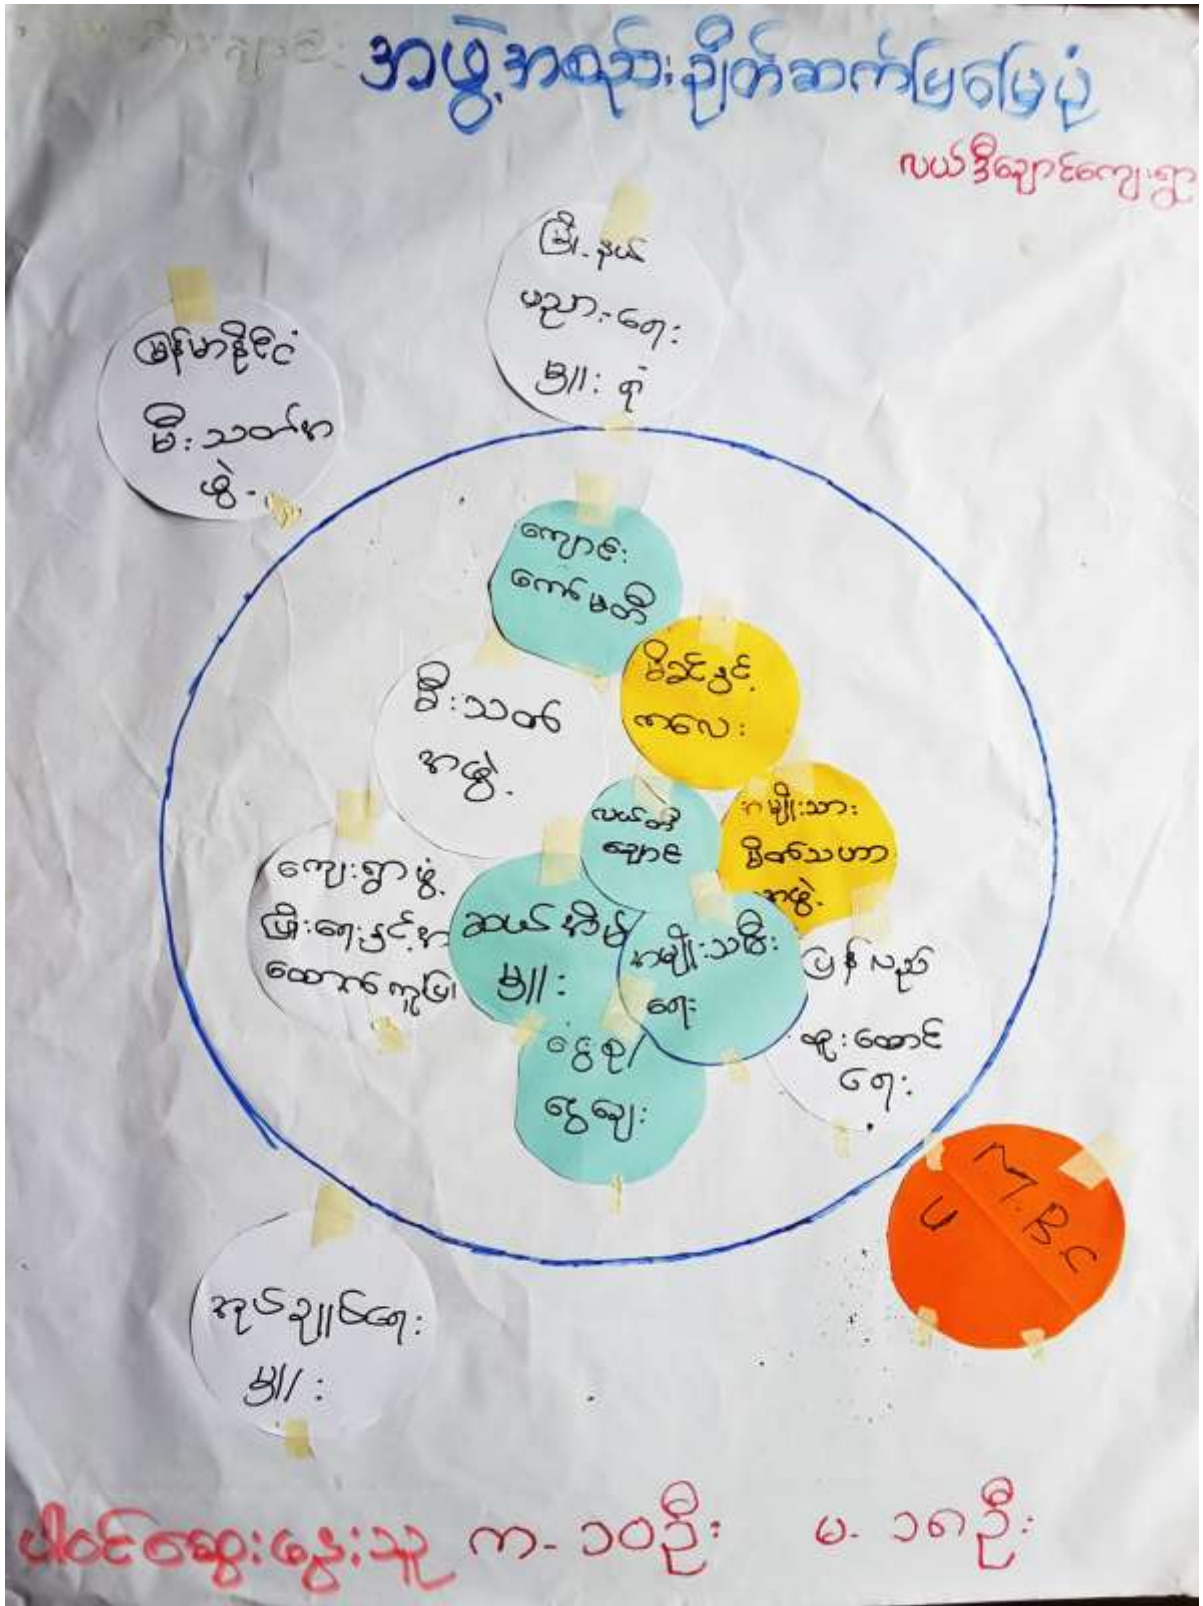 အဖွဲ့အစည်းချိတ်ဆက်မြေပုံ
လယ်ဒီချောင်ကျေးရွာ
မြို့နယ်
ပညာရေး
မှူးရုံး
မြန်မာနိုင်ငံ
မီးသတ်အ
ဖွဲ့
ကျောင်း
ကော်မတီ
မိခင်နှင့်
ကလေး
မီးသတ်
အဖွဲ့
လယ်တီ
ချောင်
အမျိုးသား
မိတ်သဟာ
အဖွဲ့
ကျေးရွာဖွံ့
ဖြိုးရေးနှင့်အ
ထောက်ကူပြု
ဆယ်အိမ်
မှူး
အမျိုးသမီး
ရေး
ပြန်လည်
ထူထောင်
ရေး
ငွေစု/
ငွေချေး
M.BC
ပ
အုပ်ချုပ်ရေး
မှူး
ပါဝင်ဆွေးနွေးသူ က- ၁၀ဦး မ- ၁၈ဦး